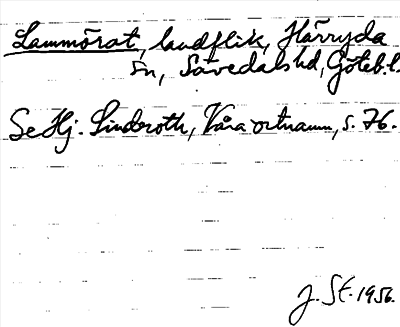 Lammörat, landflik, Härryda
sn, Sävedals hd, Göteb. l.
Se Hj. Linderoth, Våra ortnamn, s. 76.
J. St. 1956.